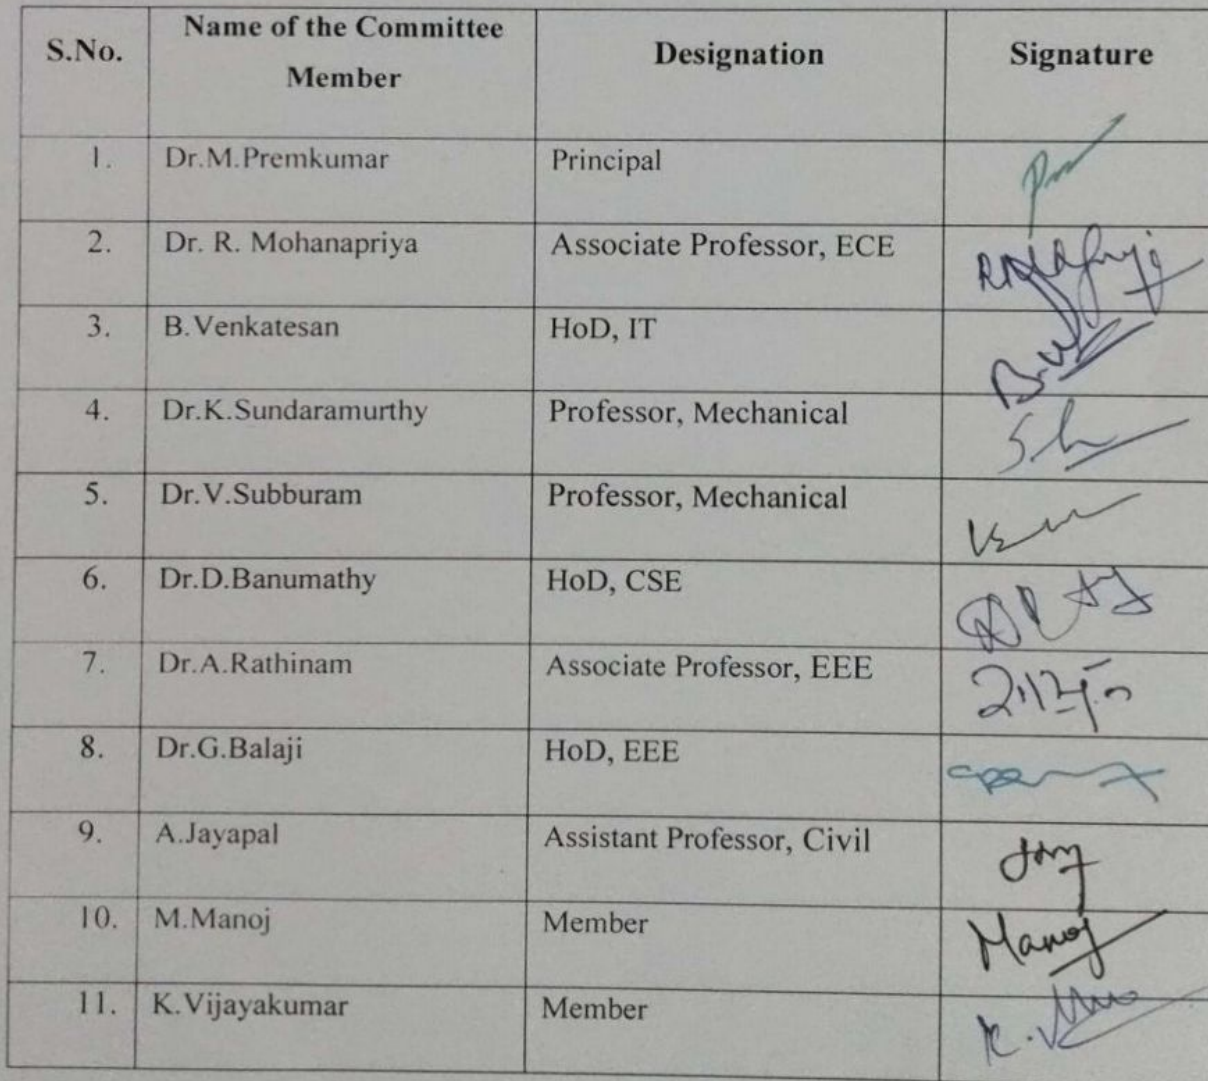 S.No. Name of the Committee Member Designation Signature
1. Dr.M.Premkumar Principal
2. Dr. R. Mohanapriya Associate Professor, ECE
3. B.Venkatesan HoD, IT
4. Dr.K.Sundaramurthy Professor, Mechanical
5. Dr.V.Subburam Professor, Mechanical
6. Dr.D.Banumathy HoD, CSE
7. Dr.A.Rathinam Associate Professor, EEE
8. Dr.G.Balaji HoD, EEE
9. A.Jayapal Assistant Professor, Civil
10. M.Manoj Member Manoj
11. K.Vijayakumar Member